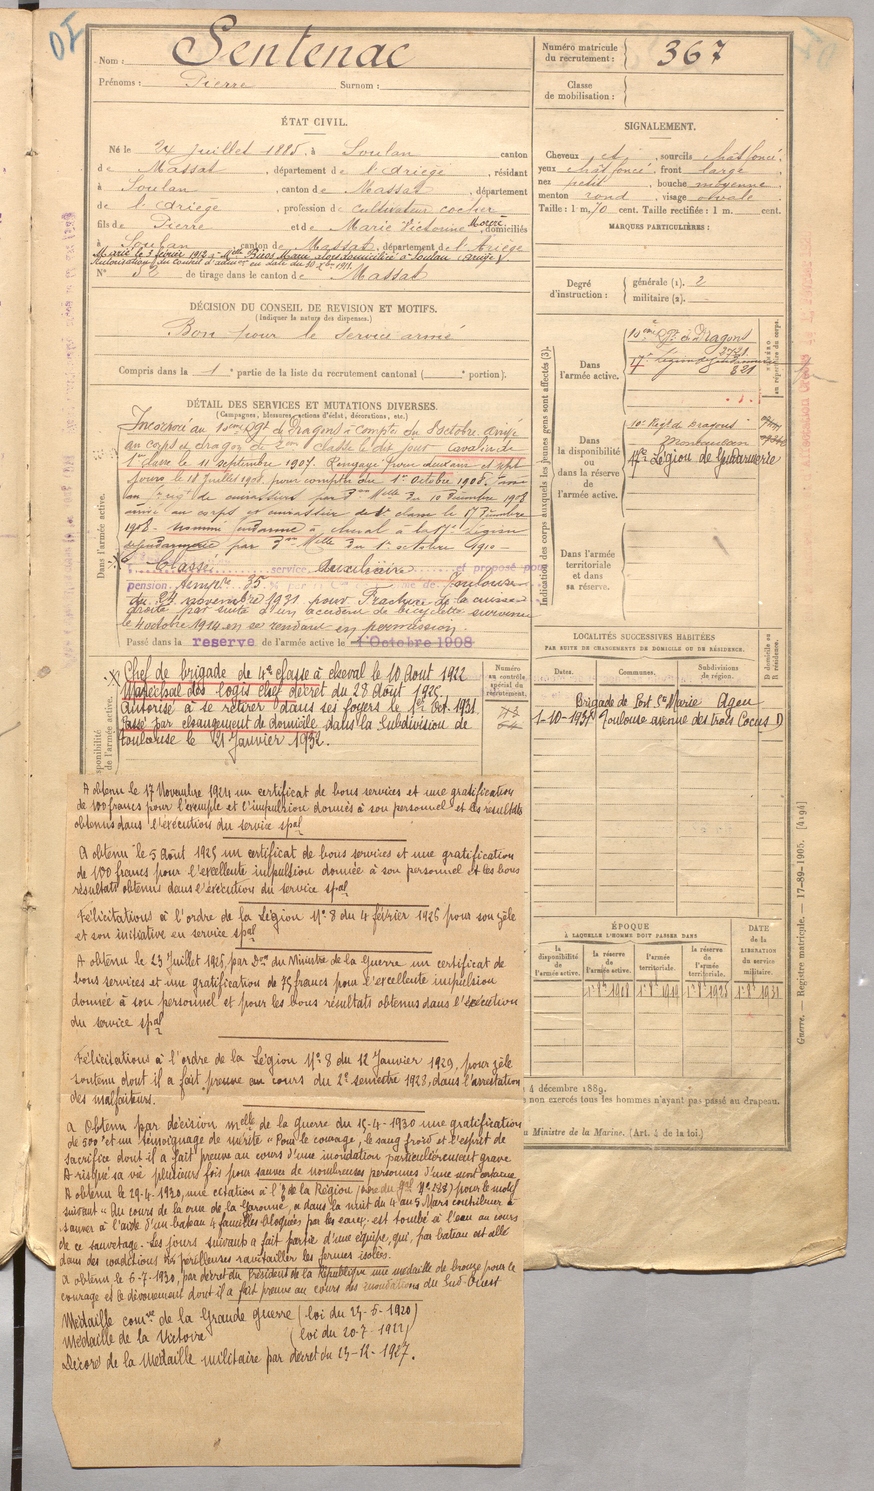 Nom : Sentenac
Prénoms : Pierre Surnom :
ÉTAT CIVIL.
Né le 24 juillet 1885, à Soulan canton
de Massat, département de l'Ariège, résidant
à Soulan, canton de Massat, département
de l'Ariège, profession de cultivateur cocher
fils de Pierre et de Marie Victorine domiciliés
à Soulan, canton de Massat, département de l'Ariège
Marié le 3 février 1912 à Melle domiciliée à Soulan (Ariège)
Autorisation du conseil d'admon en date du
N° 52 de tirage dans le canton de Massat
DÉCISION DU CONSEIL DE REVISION ET MOTIFS.
(Indiquer la nature des dispenses.)
Bon pour le service armé
Compris dans la 1e partie de la liste du recrutement cantonal ( e portion).
DÉTAIL DES SERVICES ET MUTATIONS DIVERSES.
(Campagnes, blessures, actions d'éclat, décorations, etc.)
Dans l'armée active.
Incorporé au 10eme Rgt de Dragons à compter du 8 octobre, arrivé
au corps et dragon de 2eme classe le dit jour. Cavalier de
1ere classe le 11 septembre 1907. Rengagé pour deux ans et sept
jours le 18 juillet 1908, pour compter du 1er Octobre 1908. Passé
au rég. de cuirassiers par Mlle du 10 Décembre 1908
arrivé au corps et cuirassier de classe le 17 Décembre
1908 - Nommé gendarme à cheval à la 17e Légion
de gendarmerie par Mlle du 1er octobre 1910 -
Classé service Auxiliaire et proposé pour
pension. 35 de Toulouse
du 24 novembre 1931 pour Fracture de la cuisse
droite par suite d'un accident de bicyclette survenu
le 4 octobre 1914 en se rendant en permission.
Passé dans la reserve de l'armée active le 1 Octobre 1908
Chef de brigade de 4e classe à cheval le 10 Août 1922
Maréchal des logis chef décret du 28 Août 1925
Autorisé à se retirer dans ses foyers le 1er Oct. 1931.
Passé par changement de domicile dans la Subdivision de
Toulouse le 21 Janvier 1932.
Numéro au contrôle spécial du recrutement.
A obtenu le 17 Novembre 1924 un certificat de bons services et une gratification
de 100 francs pour l'exemple et l'impulsion donnés à son personnel et les résultats
obtenus dans l'exécution du service spal
A obtenu le 5 Août 1925 un certificat de bons services et une gratification
de 100 francs pour l'excellente impulsion donnée à son personnel et les bons
résultats obtenus dans l'exécution du service spal
Félicitations à l'ordre de la Légion N° 8 du 4 février 1926 pour son zèle
et son initiative en service spal
A obtenu le 23 Juillet 1926, par Don du Ministre de la Guerre un certificat de
bons services et une gratification de 75 francs pour l'excellente impulsion
donnée à son personnel et pour les bons résultats obtenus dans l'exécution
du service spal
Félicitations à l'ordre de la Légion N° 8 du 12 Janvier 1929, pour zèle
soutenu dont il a fait preuve au cours du 2e semestre 1928, dans l'arrestation
des malfaiteurs.
A Obtenu par décision mlle de la guerre du 15-4-1930 une gratification
de 500 f et un témoignage de mérite "Pour le courage, le sang froid et l'esprit de
sacrifice dont il a fait preuve au cours d'une inondation particulièrement grave
A risqué sa vie plusieurs fois pour sauver de nombreuses personnes d'une mort certaine
A obtenu le 29-4-1930, une citation à l'O de la Région (ordre du Gal N° 238) pour le motif
suivant "Au cours de la crue de la Garonne, a dans la nuit du 4 au 5 Mars contribué à
sauver à l'aide d'un bateau 4 familles bloquées par les eaux; est tombé à l'eau au cours
de ce sauvetage. Les jours suivants a fait partie d'une équipe, qui, par bateau est allé
dans des conditions très périlleuses ravitailler les fermes isolées.
A obtenu le 6-7-1930, par décret du Président de la République une médaille de bronze pour le
courage et le dévouement dont il a fait preuve au cours des inondations du Sud-Ouest
Médaille comve de la Grande guerre (loi du 23-6-1920)
Médaille de la Victoire (loi du 20-7-1922)
Décoré de la Médaille militaire par décret du 25-12-1927.
Numéro matricule du recrutement : 367
Classe de mobilisation :
SIGNALEMENT.
Cheveux et, sourcils chât foncé
yeux chât foncé front large
nez petit, bouche moyenne
menton rond, visage ovale
Taille : 1 m. 70 cent. Taille rectifiée : 1 m. cent.
MARQUES PARTICULIÈRES :
Degré d'instruction : générale (1). 2
militaire (2). -
Indication des corps auxquels les jeunes gens sont affectés (3).
Dans l'armée active.
10eme Rgt de Dragons
2721
17e Légion de Gendarmerie
821
Dans la disponibilité ou dans la réserve de l'armée active.
10e Régt de Dragons
Montauban
17e Légion de Gendarmerie
Dans l'armée territoriale et dans sa réserve.
LOCALITÉS SUCCESSIVES HABITÉES
PAR SUITE DE CHANGEMENTS DE DOMICILE OU DE RÉSIDENCE.
Dates. Communes. Subdivisions de région. D domicile ou R résidence.
Brigade de Port Ste Marie Agen
1-10-1931 Toulouse avenue des trois Cocus D
ÉPOQUE
À LAQUELLE L'HOMME DOIT PASSER DANS
la disponibilité de l'armée active. la réserve de l'armée active. l'armée territoriale. la réserve de l'armée territoriale. DATE de la LIBÉRATION du service militaire.
1er 8bre 1908 1er 8bre 1919 1er 8bre 1925 1er 8bre 1931
4 décembre 1889.
e non exercés tous les hommes n'ayant pas passé au drapeau.
u Ministre de la Marine. (Art. 4 de la loi.)
Guerre. — Registre matricule. — 17-89-1905. [4194]